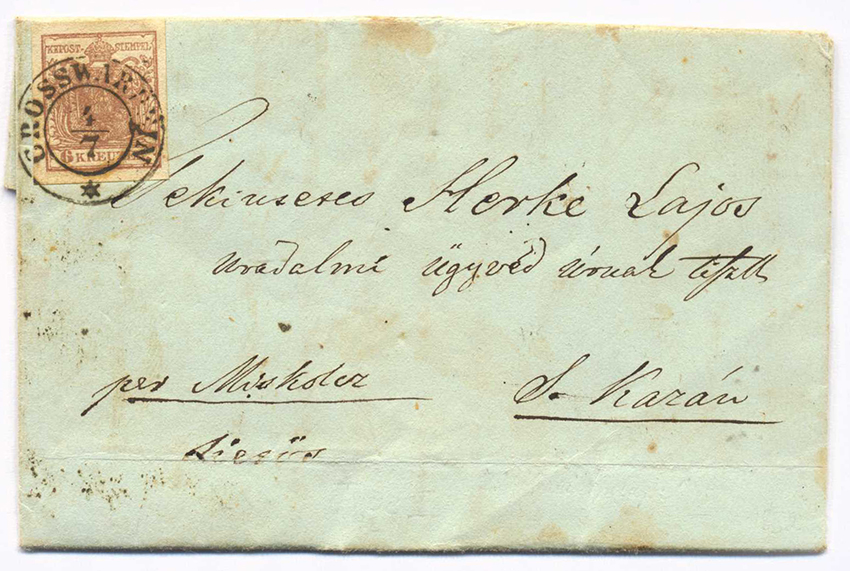 KK POST-STEMPEL
GROSSWARDEIN
4/7
6 KREUZ
Tekintetes Herke Lajos
uradalmi ügyvéd úrnak tisztt
per Miskolcz
S. Kazán